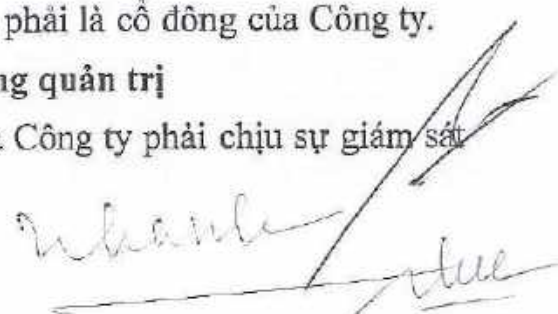 phải là cổ đông của Công ty.
ng quản trị
Công ty phải chịu sự giám sát